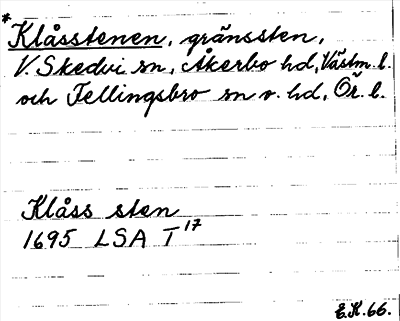 *Klåsstenen, gränssten,
V. Skedvi sn, Åkerbo hd, Västm. l.
och Fellingsbro sn o. hd, Ör. l.
Klåss sten
1695 LSA T 17
E.K. 66.